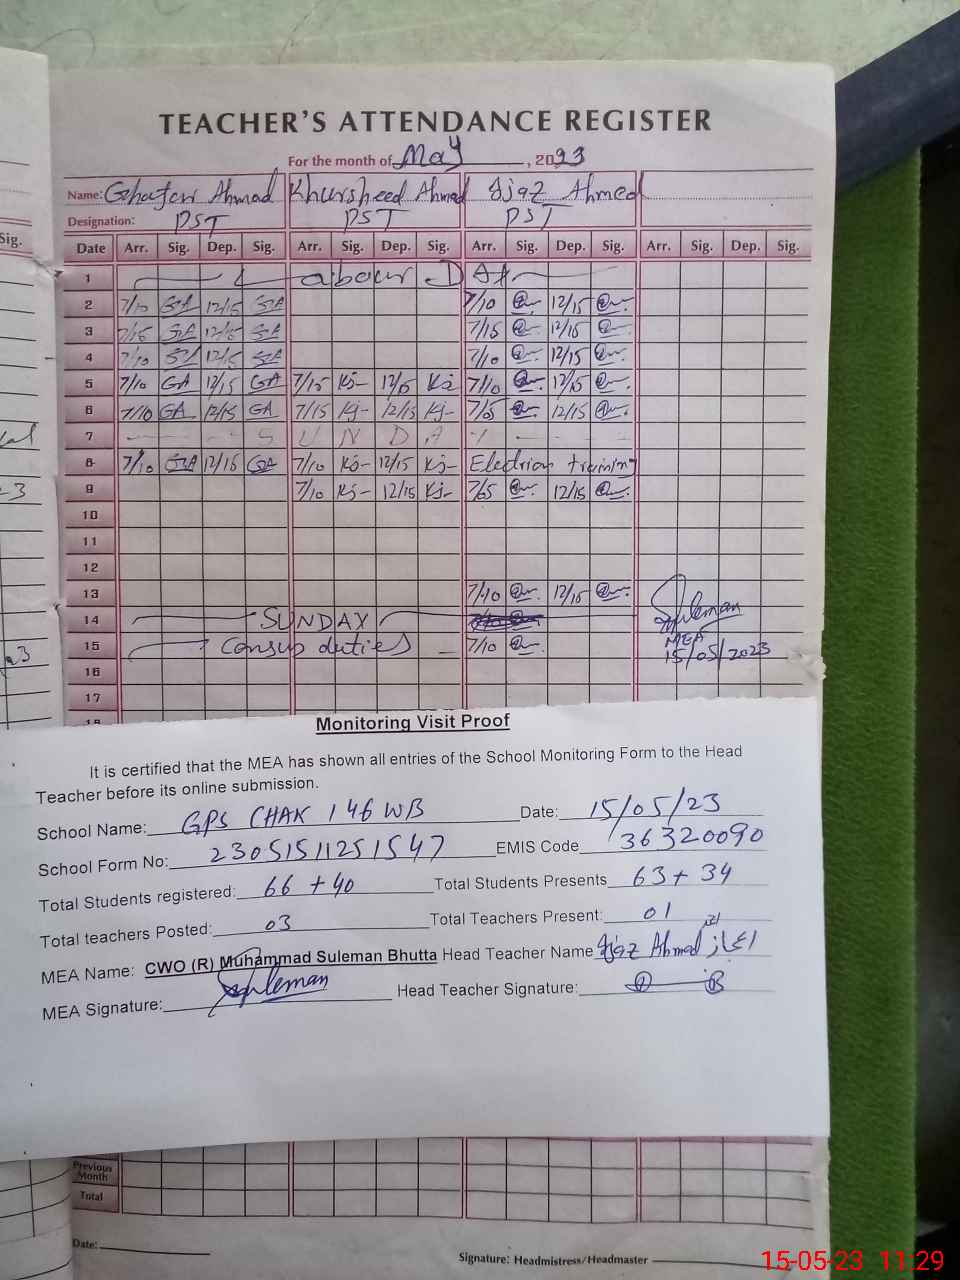 TEACHER'S ATTENDANCE REGISTER
For the month of May, 2023
Name: Ahmad Khursheed Ahmad Ijaz Ahmed
Designation: PST PST PST
Sig. Date Arr. Sig. Dep. Sig. Arr. Sig. Dep. Sig. Arr. Sig. Dep. Sig. Arr. Sig. Dep. Sig.
1 Labour Day
2 7/10 GA 12/15 GA 7/10 12/15
3 7/15 GA 12/15 GA 7/15 12/15
4 7/10 GA 12/15 GA 7/10 12/15
5 7/10 GA 12/15 GA 7/15 Kj- 12/15 Kj 7/10 12/15
6 7/10 GA 12/15 GA 7/15 Kj- 12/15 Kj- 12/15
7 SUNDAY
8 7/10 GA 12/15 GA 7/10 Kj- 12/15 Kj- Election training
9 7/10 Kj- 12/15 Kj- 12/15
10
11
12
13 7/10 12/15
14 SUNDAY
15 duties 7/10
Suleman
MEA
15/05/2023
16
17
18
Monitoring Visit Proof
It is certified that the MEA has shown all entries of the School Monitoring Form to the Head
Teacher before its online submission.
School Name: GPS CHAK 146 WB Date: 15/05/23
School Form No: 23051511251547 EMIS Code 36320090
Total Students registered: 66 + 40 Total Students Presents 63 + 34
Total teachers Posted: 03 Total Teachers Present: 01
MEA Name: CWO (R) Muhammad Suleman Bhutta Head Teacher Name Ijaz Ahmed اعجاز احمد
MEA Signature: Suleman Head Teacher Signature:
Previous Month
Total
Date:
Signature: Headmistress/Headmaster
15-05-23 11:29